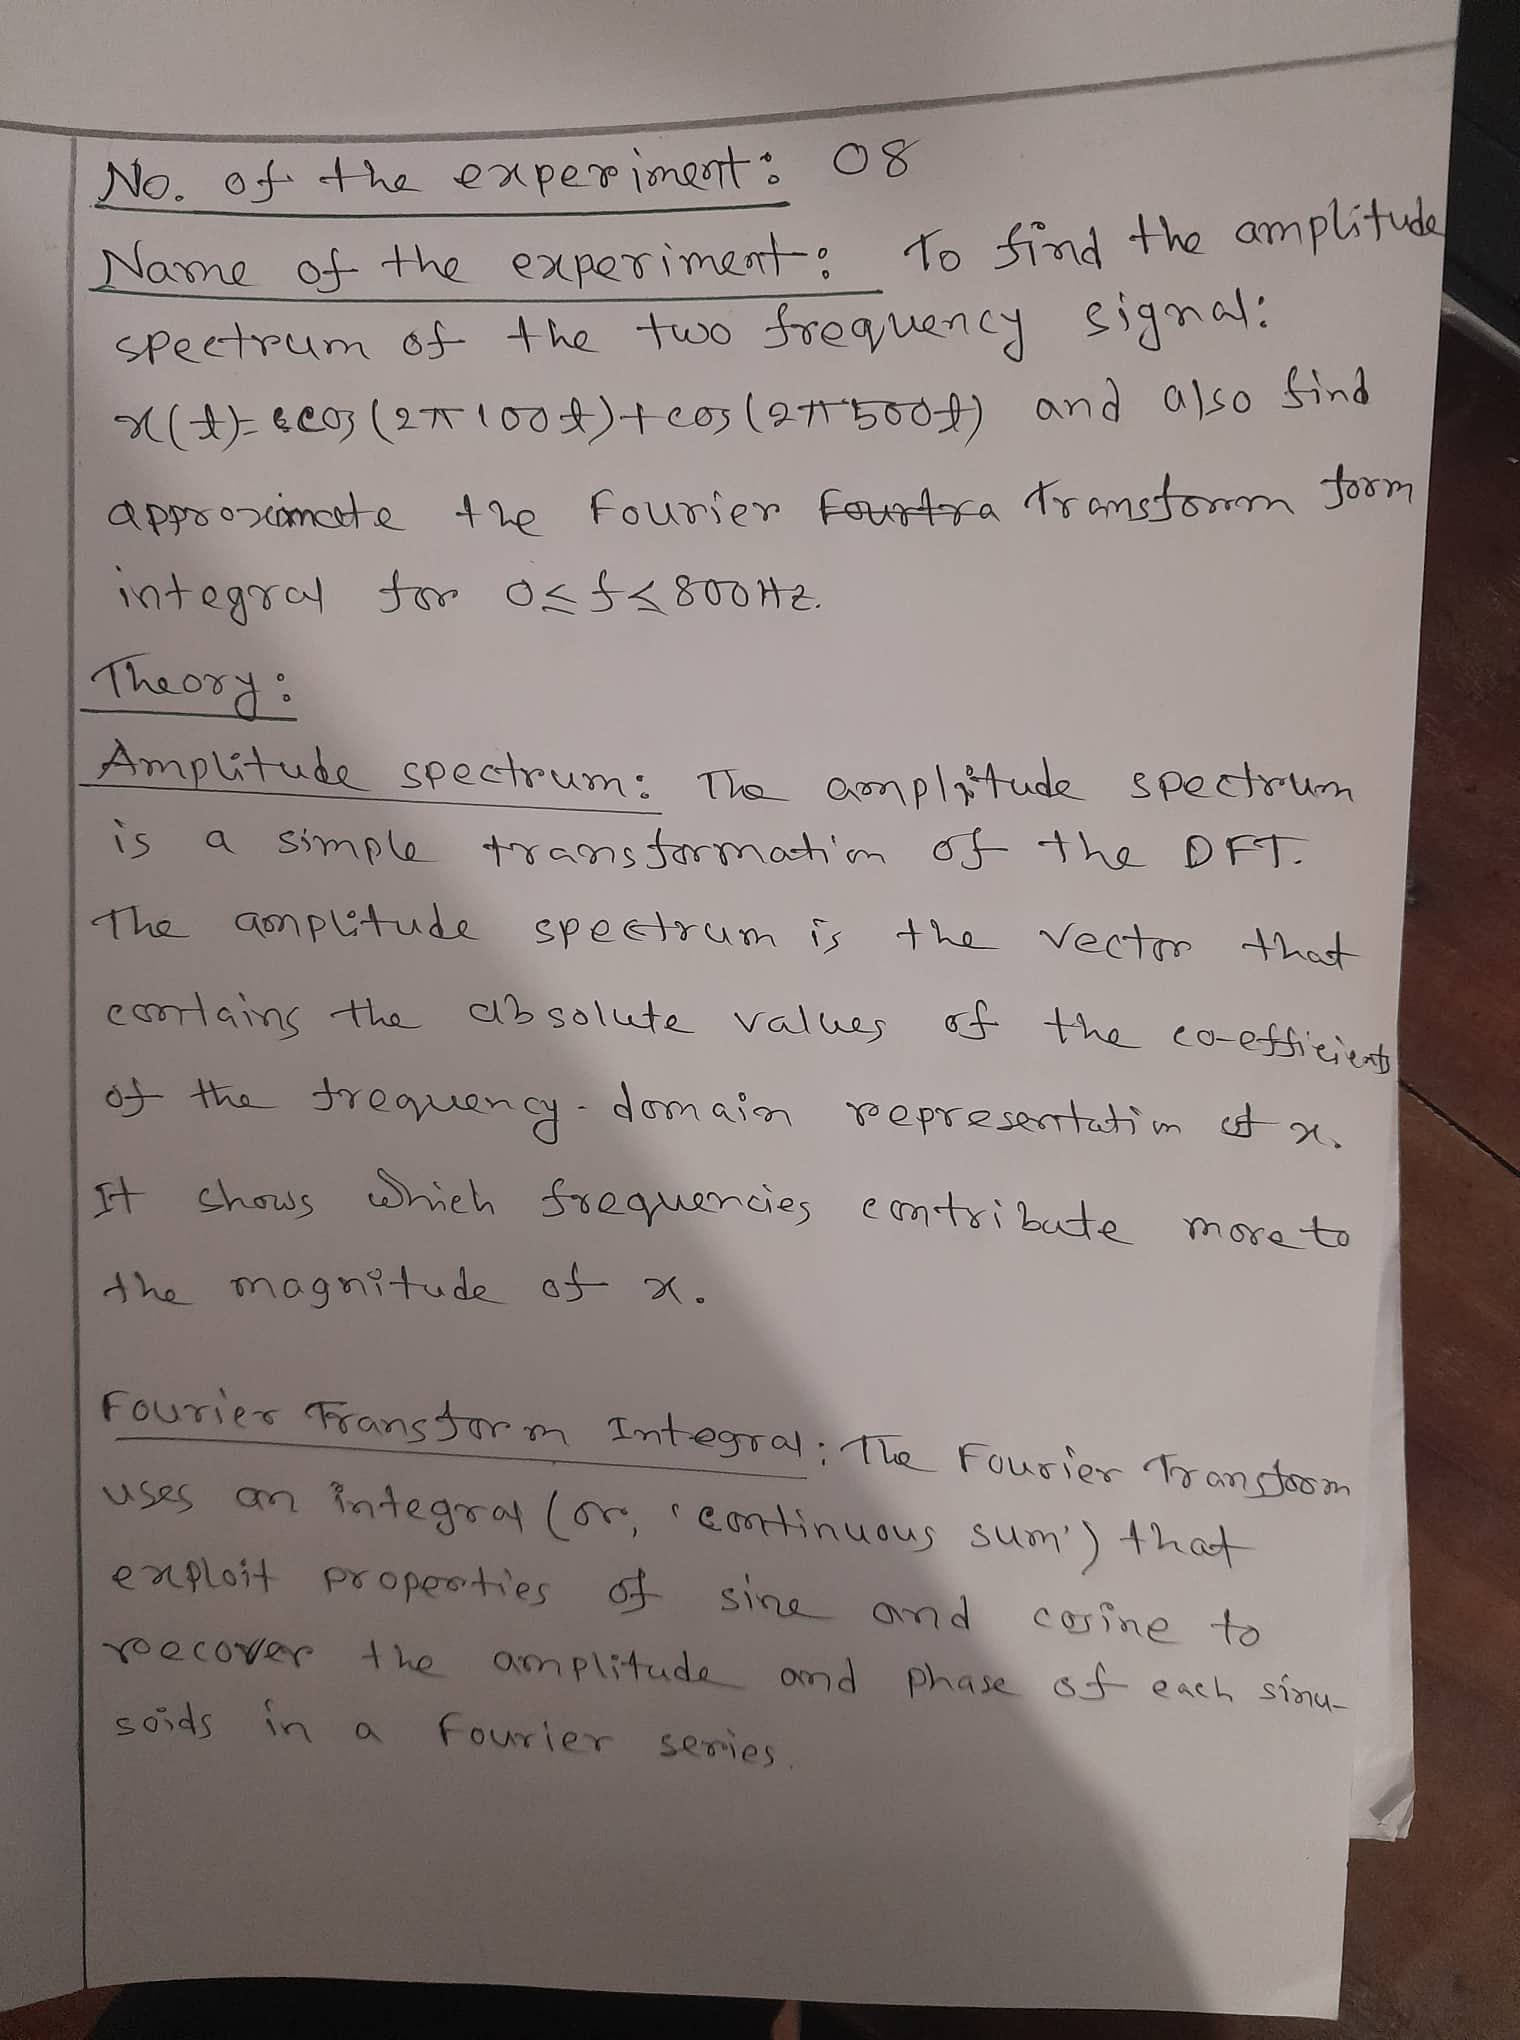 No. of the experiment: 08
Name of the experiment: To find the amplitude
spectrum of the two frequency signal:
x(t)= cos(2π100t)+cos(2π500t) and also find
approximate the Fourier Fourtra Transform form
integral for 0≤f≤800Hz.
Theory:
Amplitude spectrum: The amplitude spectrum
is a simple transformation of the DFT.
The amplitude spectrum is the vector that
contains the absolute values of the co-efficients
of the frequency-domain representation of x.
It shows which frequencies contribute more to
the magnitude of x.
Fourier Transform Integral: The Fourier Transform
uses an integral (or, 'continuous sum') that
exploit properties of sine and cosine to
recover the amplitude and phase of each sinu-
soids in a Fourier series.